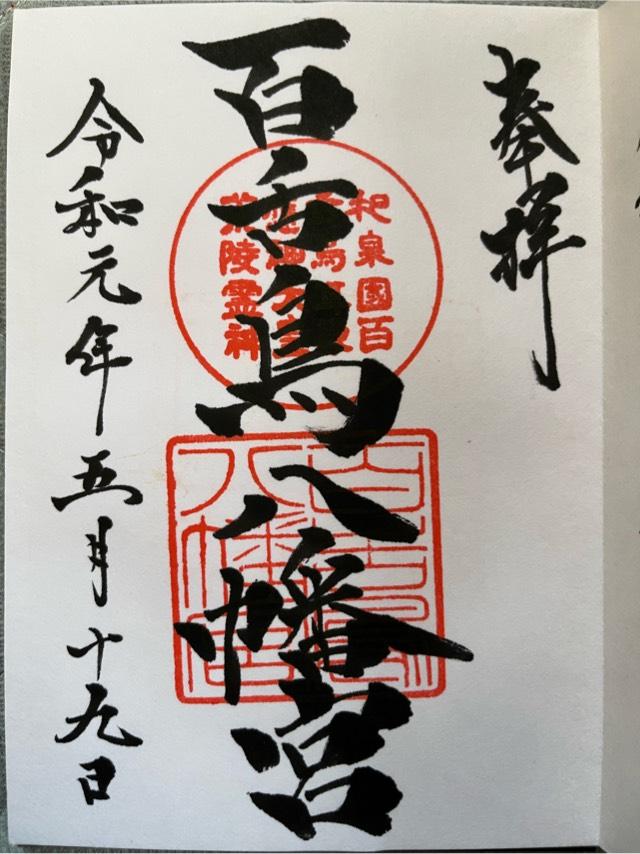 奉拝
百舌鳥八幡宮
令和元年五月十九日
和泉國百
陵霊神